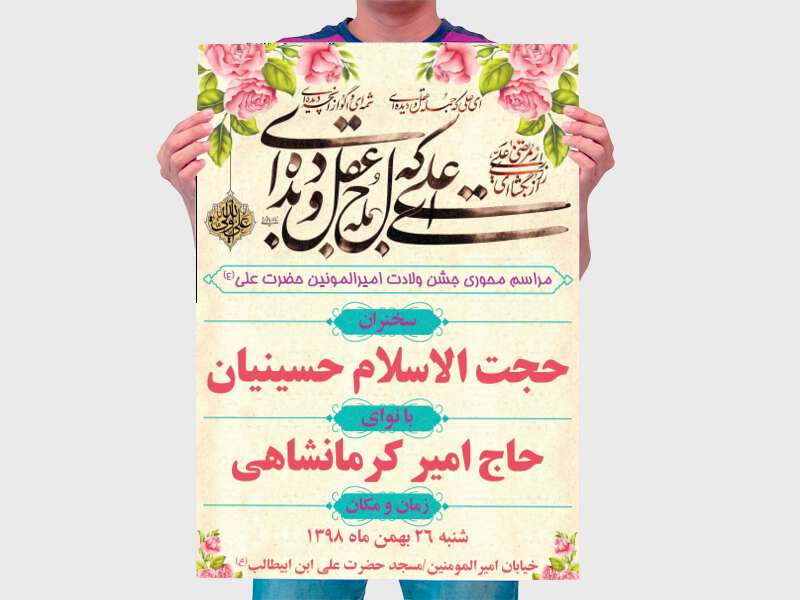 ای علی که جمله عقل و دیده‌ای
شمه‌ای واگو از آنچه دیده‌ای
ای علی که جمله عقل و دیده‌ای
راز بگشا ای علی مرتضی
علی ولی الله
مراسم محوری جشن ولادت امیرالمونین حضرت علی(ع)
سخنران
حجت الاسلام حسینیان
با نوای
حاج امیر کرمانشاهی
زمان و مکان
شنبه ۲۶ بهمن ماه ۱۳۹۸
خیابان امیرالمومنین/مسجد حضرت علی ابن ابیطالب(ع)